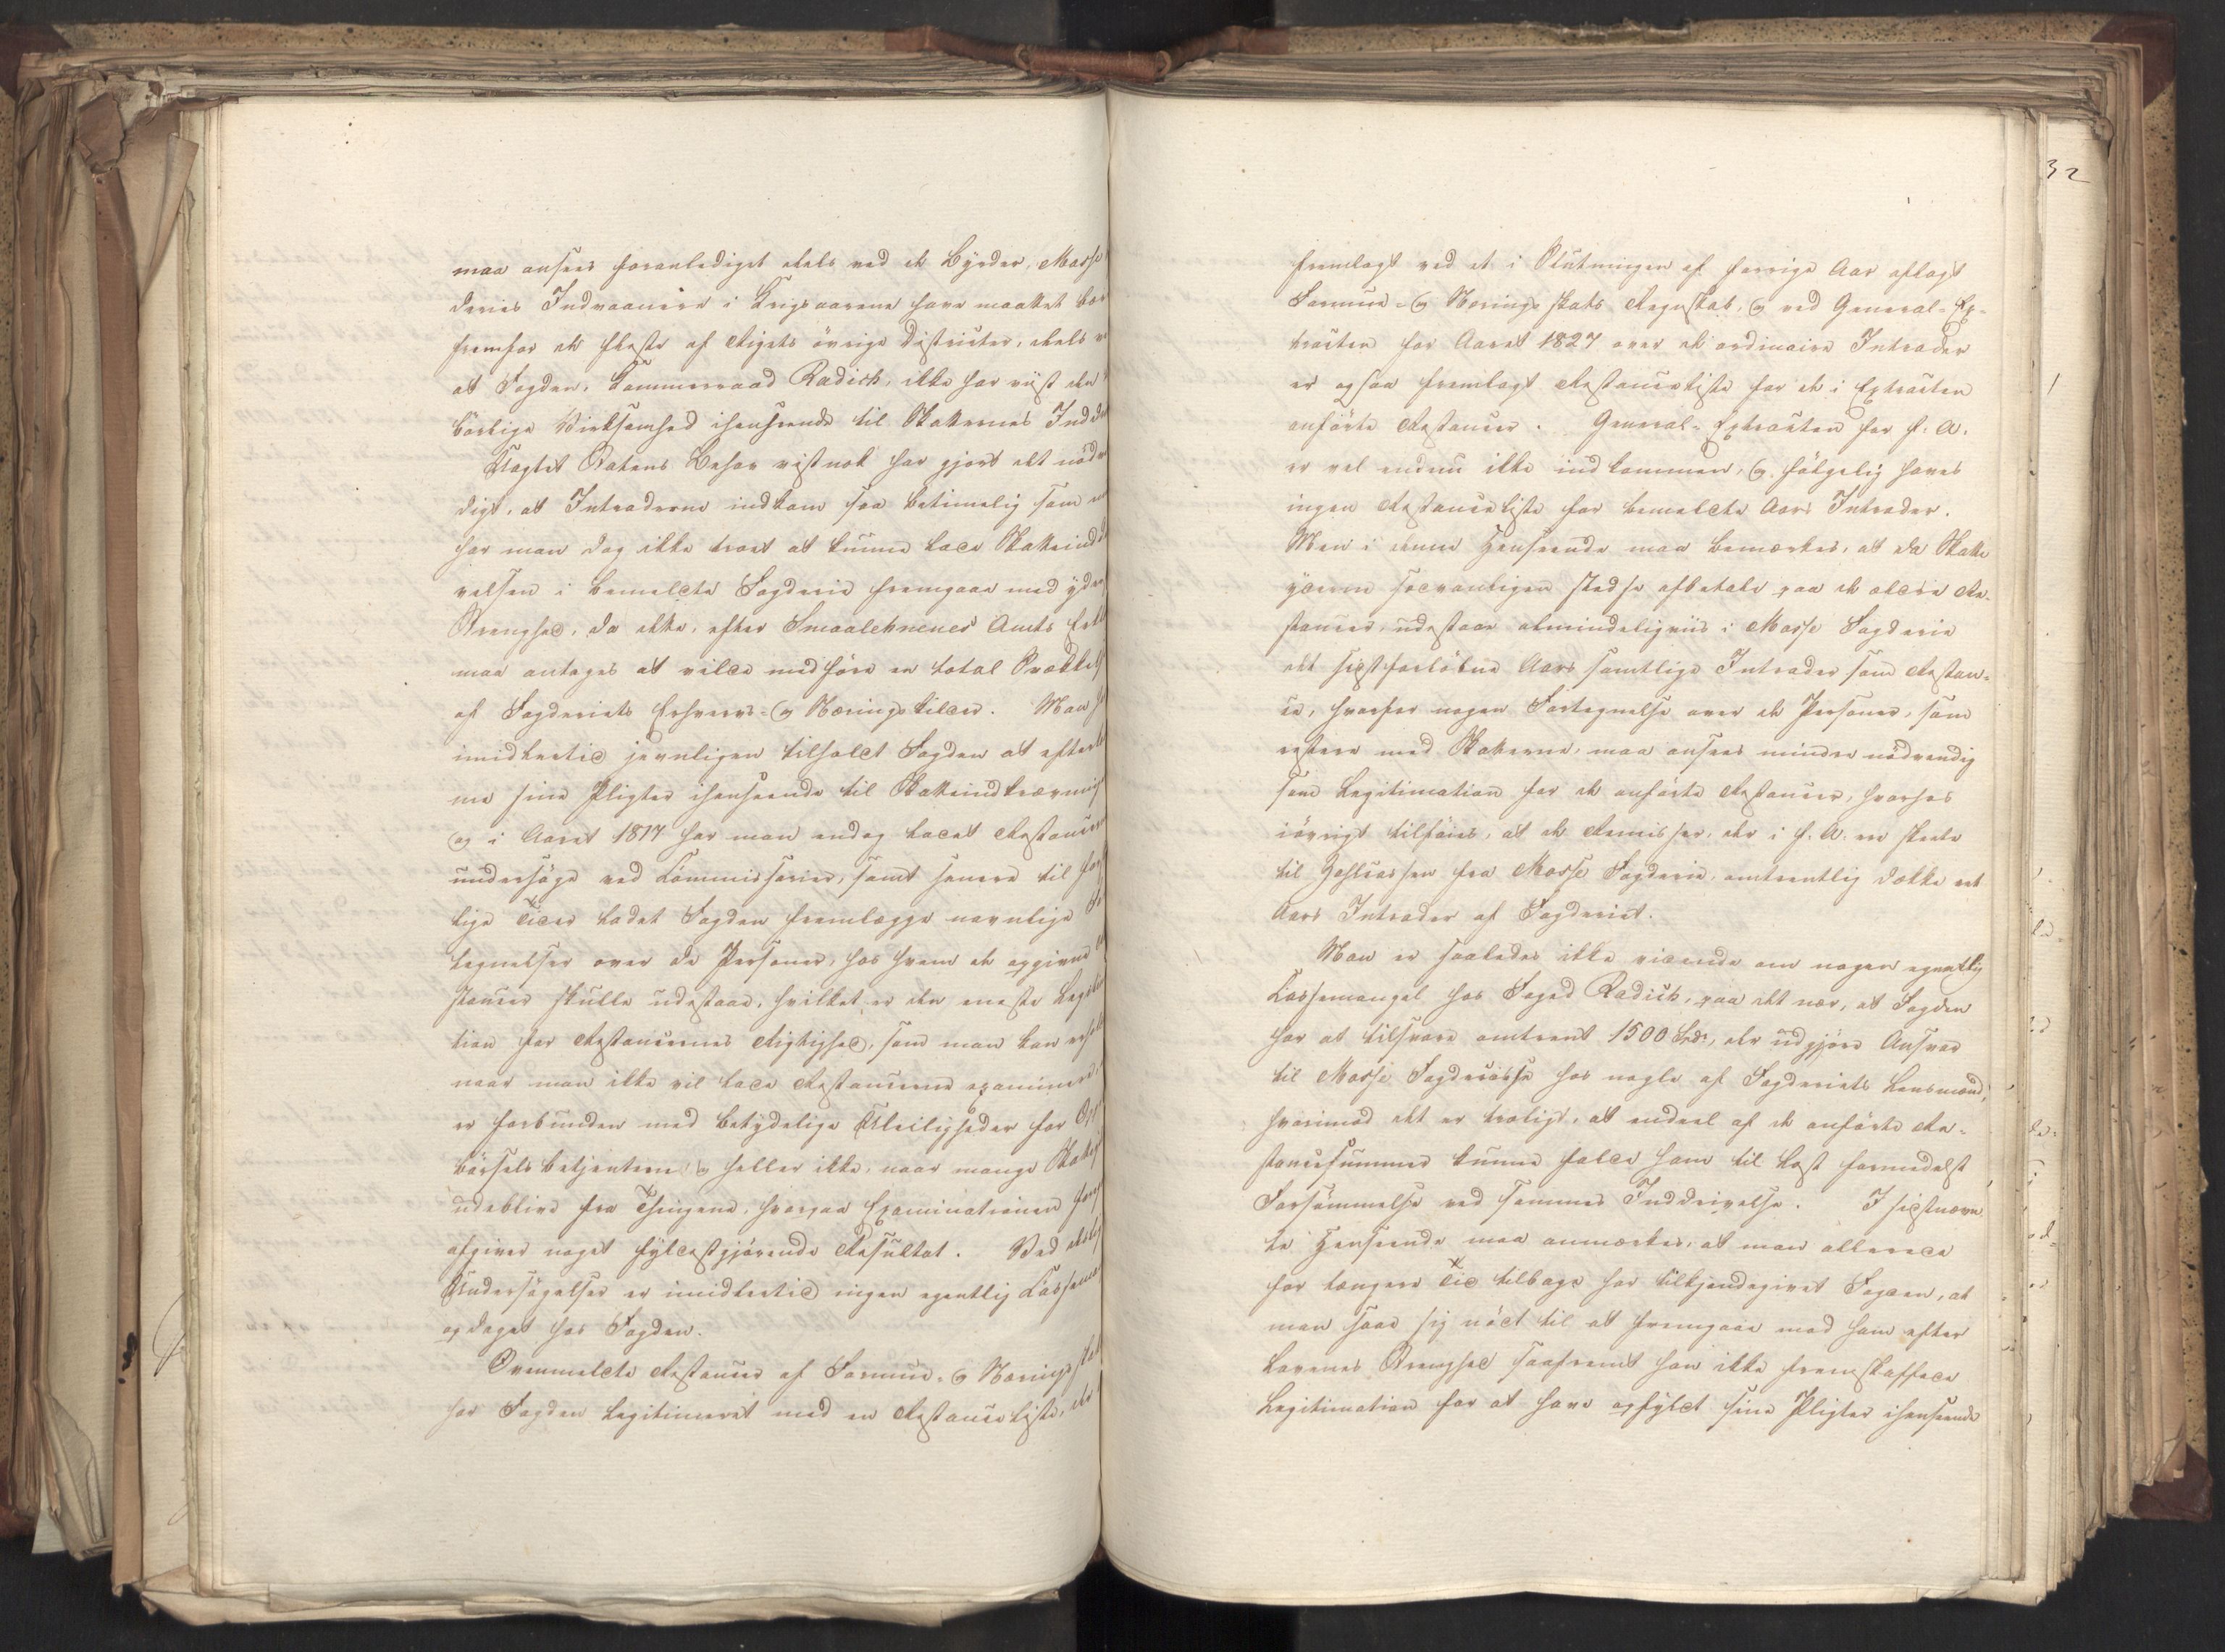 maa ansees foranlediget deels ved de Byrder, Mosse
deries Indvaanere i Krigsaarene have maattet bær
fremfor de fleste af Rigets övrige Districter, deels v
at Fogden, Kammerraad Radich, ikke har viist den
börlige Virksomhed ihenseende til Skatternes Inddri
Uagtet Statens Behov vistnok har gjort det nödv
digt, at Intraderne indkom saa betimelig som
har man dog ikke troet at kunne lade Skatteinddri
velsen i bemeldte Fogderie fremgaae med yder
Strenghed, da dette, efter Smaalehnenes Amts Erkl
maa antages at ville medföre en total Svækkels
af Fogderiets Erhvervs- og Næringskilder. Man h
imidlertid jevnligen tilholdt Fogden at efterko
me sine Pligter ihenseende til Skatteindkrævning
og i Aaret 1817 har man endog ladet Restancer
undersöge ved Kommissarier, samt senere til for
lige Tider ladet Fogden fremlægge navnlige For
tegnelser over de Personer, hos hvem de opgivne
stancer skulle udestaae, hvilket er den eneste Legitima
tion for Restancernes Rigtighed, som man kan erholde
naar man ikke vil lade Restancerne examinere,
er forbunden med betydelige Uleiligheder for Op
börselsbetjentene og heller ikke, naar mange Skattey
udeblive fra Thingene, hvorpaa Examinationen
afgiver noget fyldestgjörende Resultat. Ved
Undersögelser er imidlertid ingen egentlig Kasseman
opdaget hos Fogden.
Ovenmeldte Restancer af Formue- og Næringsskat
har Fogden legitimeret med en Restanceliste, der
32
fremlagt ved et i Slutningen af forrige Aar aflagt
Formue- og Næringsskats Regnskab, og ved General-Ex-
tracten for Aaret 1827 over de ordinaire Intrader
er ogsaa fremlagt Restanceliste for de i Extracten
anförte Restancer. General-Extracten for f. A.
er vel endnu ikke indkommen, og fölgelig haves
ingen Restanceliste for bemeldte Aars Intrader.
Men i denne Henseende maa bemærkes, at da Skatte
yderne sædvanligen stedse afbetale paa de ældre Re-
stancer, udestaae almindeligviis i Mosse Fogderie
det sidstforlöbne Aars samtlige Intrader som Restan-
ce, hvorfor nogen Fortegnelse over de Personer, som
restere med Skatterne, maa ansees mindre nödvendig
som Legitimation for de anförte Restancer, hvorhos
iövrigt tilföies, at de Remisser, der i f. A. ere skeete
til Zahlcassen fra Mosse Fogderie, omtrentlig dække eet
Aars Intrader af Fogderiet.
Man er saaledes ikke vidende om nogen egentlig
Kassemangel hos Foged Radich, paa det nær, at Fogden
har at tilsvare omtrent 1500 Spd., der udgjöre Ansvar
til Mosse Fogdcasse hos nogle af Fogderiets Lensmænd,
hvorimod det er troligt, at endeel af de anförte Re-
stancesummer kunne falde ham til Last formedelst
Forsömmelse ved sammes Inddrivelse. I sidstnævn
te Henseende maa anmærkes, at man allerede
for længere Tid tilbage har tilkjendegivet Fogden, at
man saae sig nödt til at fremgaae mod ham efter
Lovenes Strenghed saafremt han ikke fremskaffede
Legitimation for at have opfyldt sine Pligter ihenseende